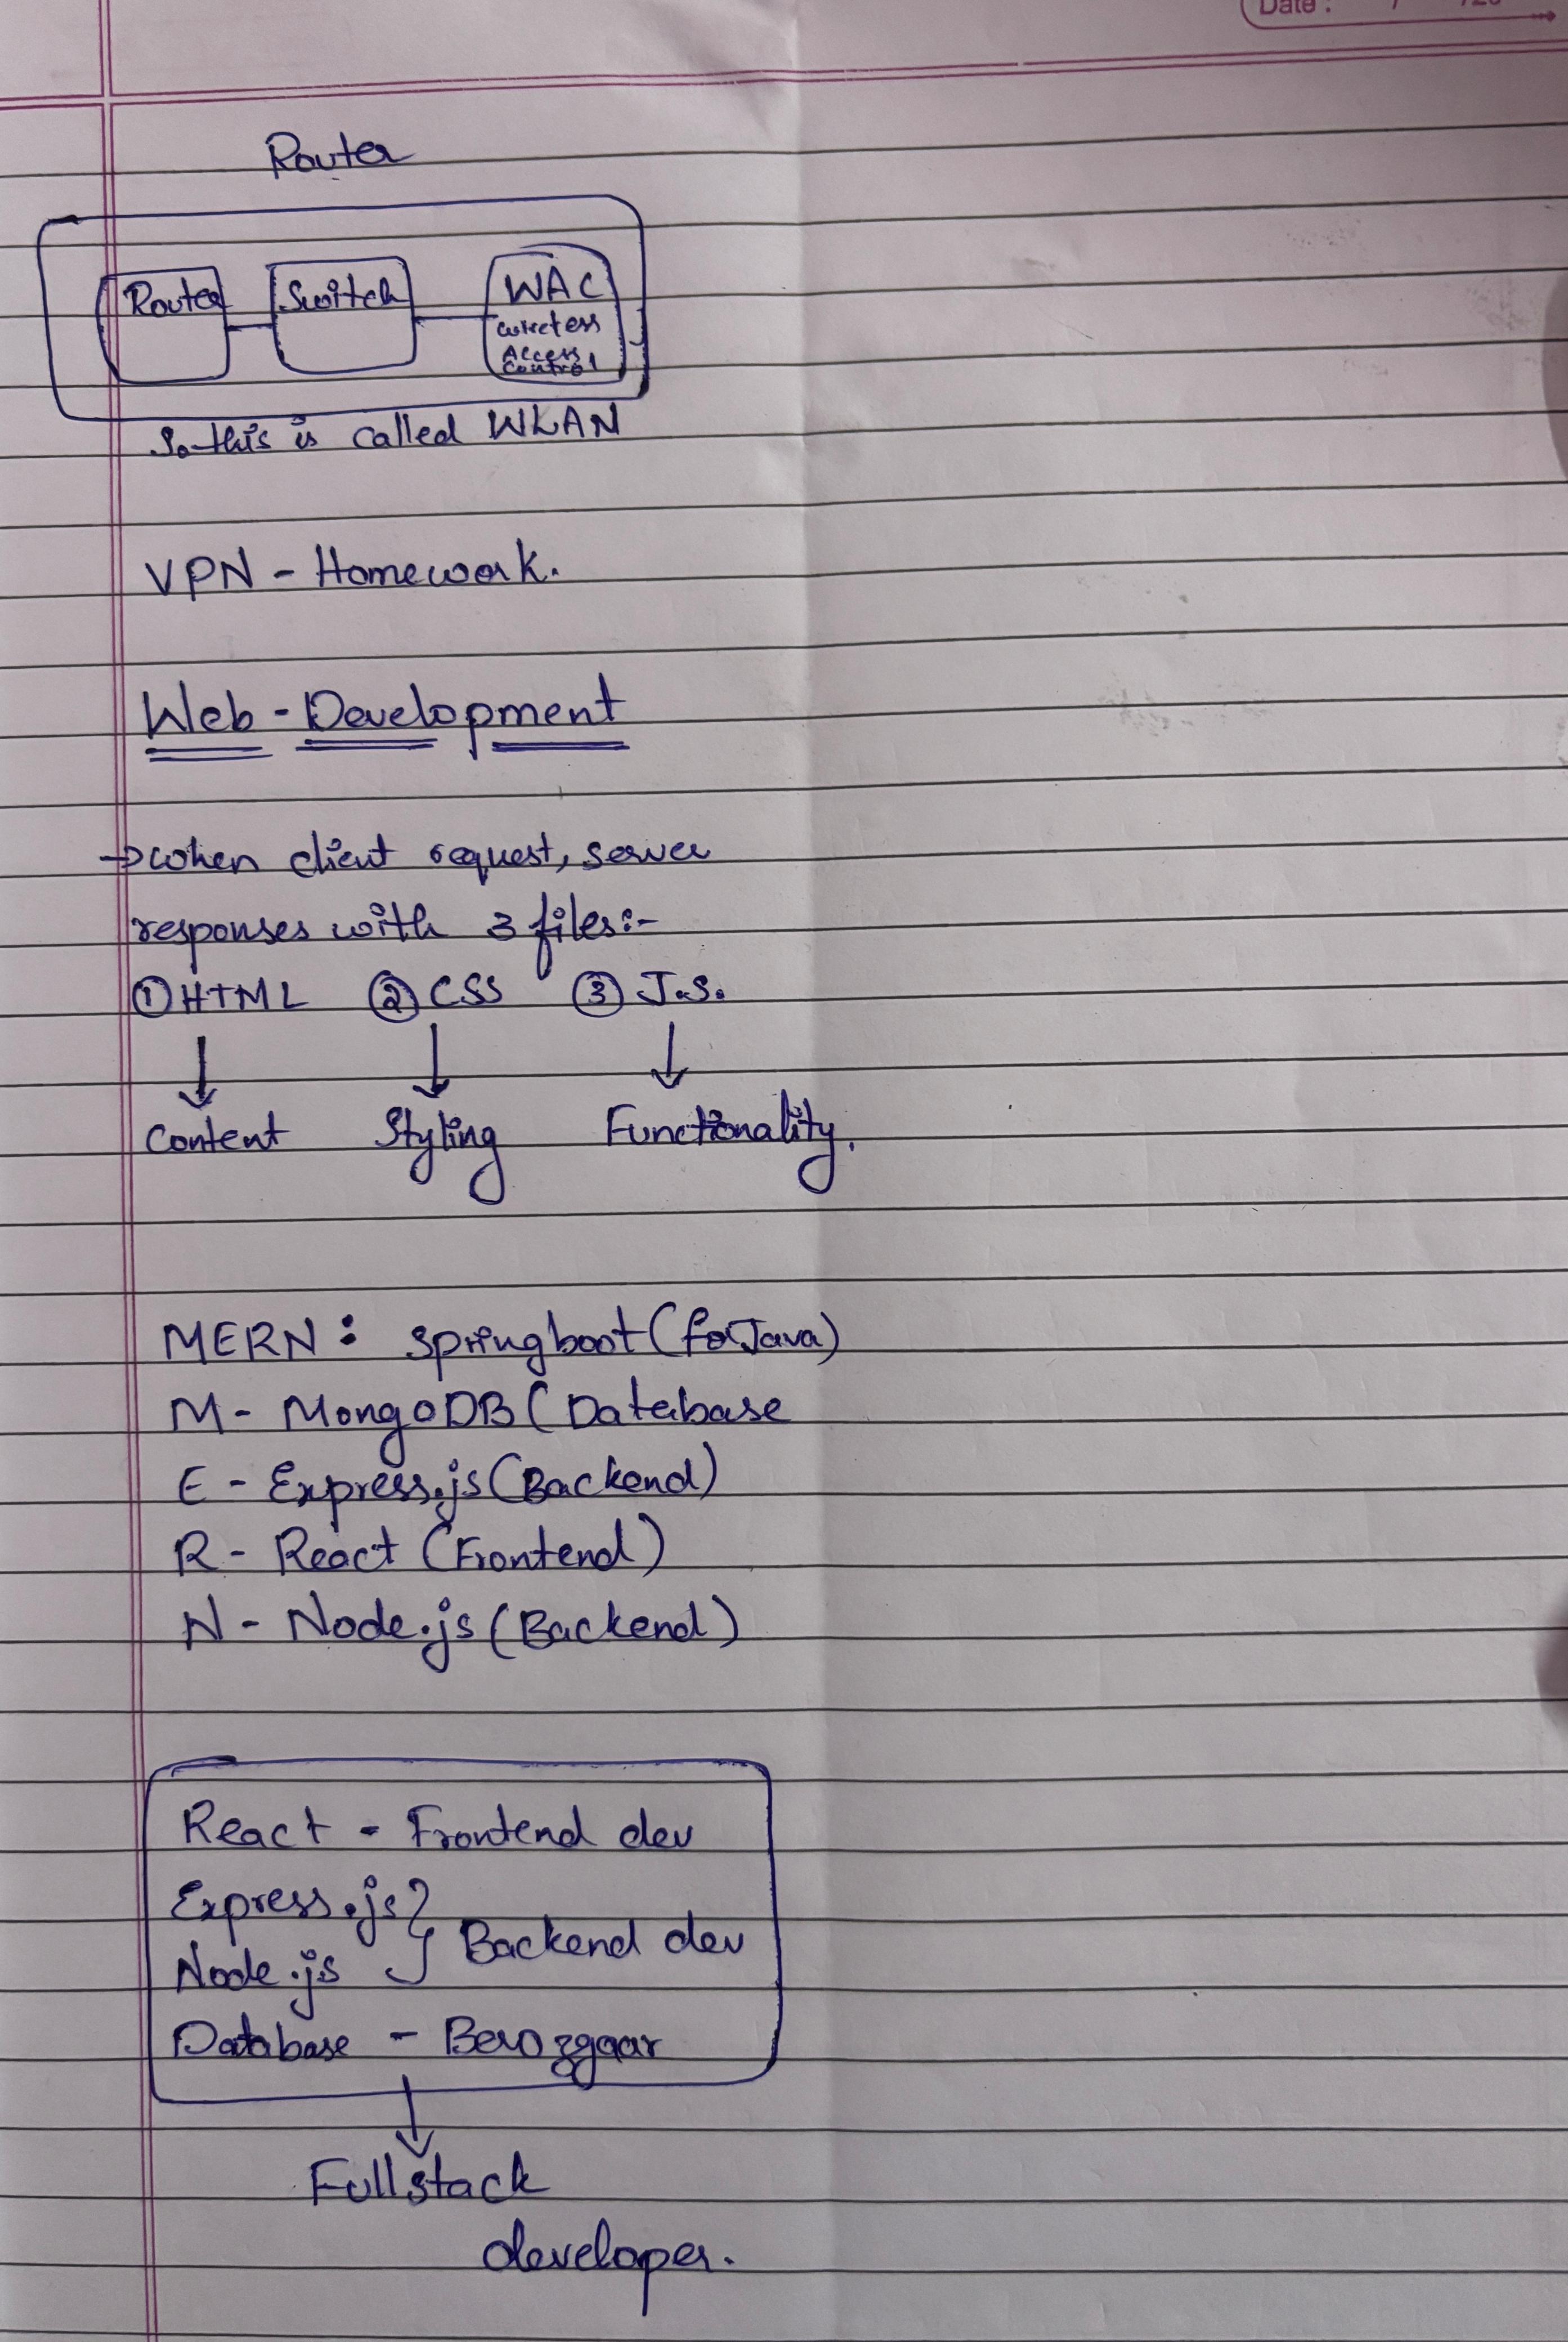 Date : / /20
Router
Router Switch WAC
Wireless
Access
Control
So this is called WLAN
VPN - Homework.
Web - Development
→ when client request, server
responses with 3 files:-
① HTML ② CSS ③ J.S.
↓ ↓ ↓
Content Styling Functionality.
MERN : springboot (for Java)
M - MongoDB ( Database
E - Express.js (Backend)
R - React (Frontend)
N - Node.js (Backend)
React - Frontend dev
Express.js }
Node.js } Backend dev
Database - Berozgaar
↓
Fullstack
developer.